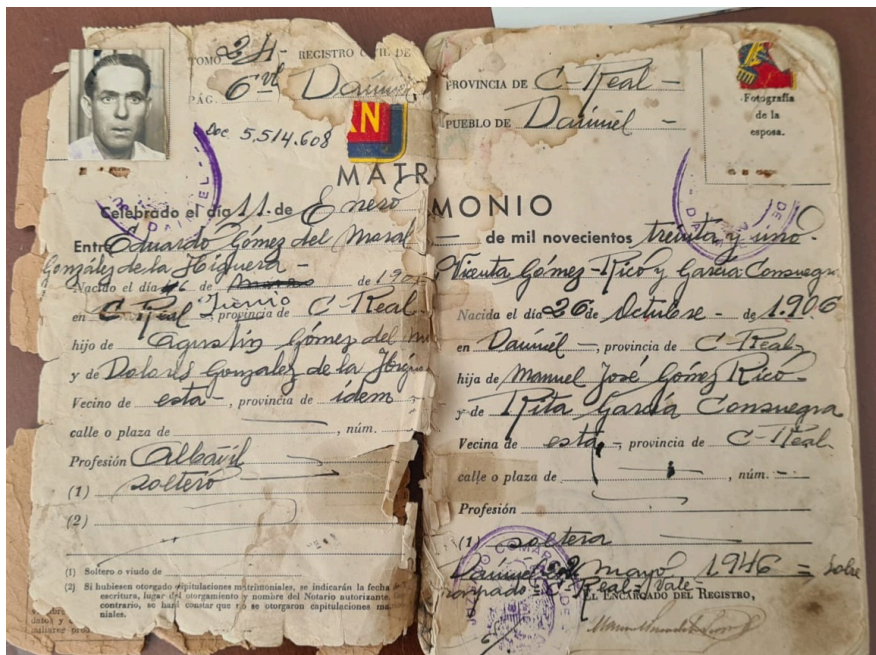 TOMO 24- REGISTRO CIVIL DE
PÁG. 6 vt Daimiel
Doc 5,514.608
AN
MATR
Celebrado el día 11. de Enero
Entre Eduardo Gómez del Moral
González de la Higuera -
Nacido el día 16 de Marzo de 190
Junio
en C-Real, provincia de C-Real
hijo de Agustín Gómez del M
y de Dolores Gonzalez de la Higue
Vecino de esta -, provincia de idem
calle o plaza de , núm.
Profesión Albañil
(1) soltero
(2)
(1) Soltero o viudo de
(2) Si hubiesen otorgado capitulaciones matrimoniales, se indicarán la fecha
escritura, lugar del otorgamiento y nombre del Notario autorizante.
contrario, se hará constar que no se otorgaron capitulaciones ma
niales.
PROVINCIA DE C-Real -
PUEBLO DE Daimiel -
Fotografía
de la
esposa.
MONIO
- de mil novecientos treinta y uno.
Vicenta Gómez-Rico y García-Consuegra
Nacida el día 26 de Octubre - de 1.906
en Daimiel -, provincia de C-Real-
hija de Manuel José Gómez Rico-
y de Rita García Consuegra
Vecina de esta -, provincia de C-Real-
calle o plaza de , núm. -
Profesión
(1) soltera
Daimiel 22 mayo 1946 = Sobre
raspado = C Real = Vale -
EL ENCARGADO DEL REGISTRO,